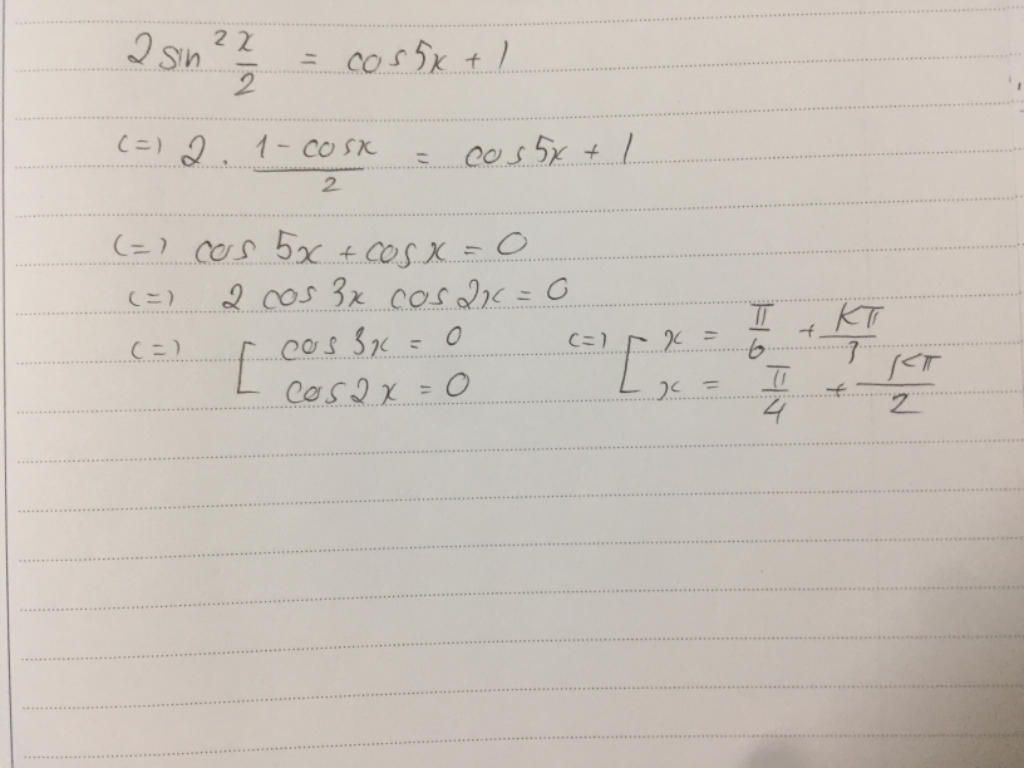 2 sin² x/2 = cos5x + 1
(=) 2 . (1 - cosx)/2 = cos5x + 1
(=) cos 5x + cosx = 0
(=) 2 cos 3x cos 2x = 0
(=) [ cos 3x = 0 (=) [ x = π/6 + Kπ/3
cos2x = 0 x = π/4 + Kπ/2